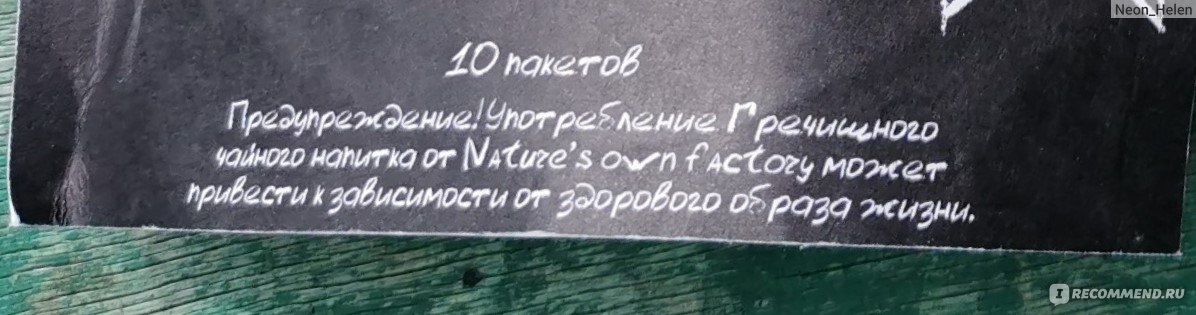 Neon_Helen
10 пакетов
Предупреждение! Употребление Гречишного
чайного напитка от NAture's own fActory может
привести к зависимости от здорового образа жизни.
IRECOMMEND.RU